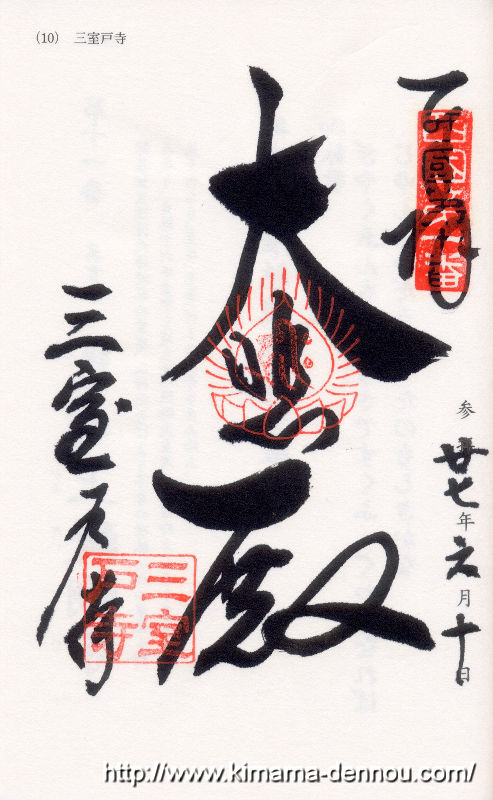 (10) 三室戸寺
奉拝
西国第十番
参
廿七年六月十日
大悲殿
三室戸寺
三室戸寺
http://www.kimama-dennou.com/